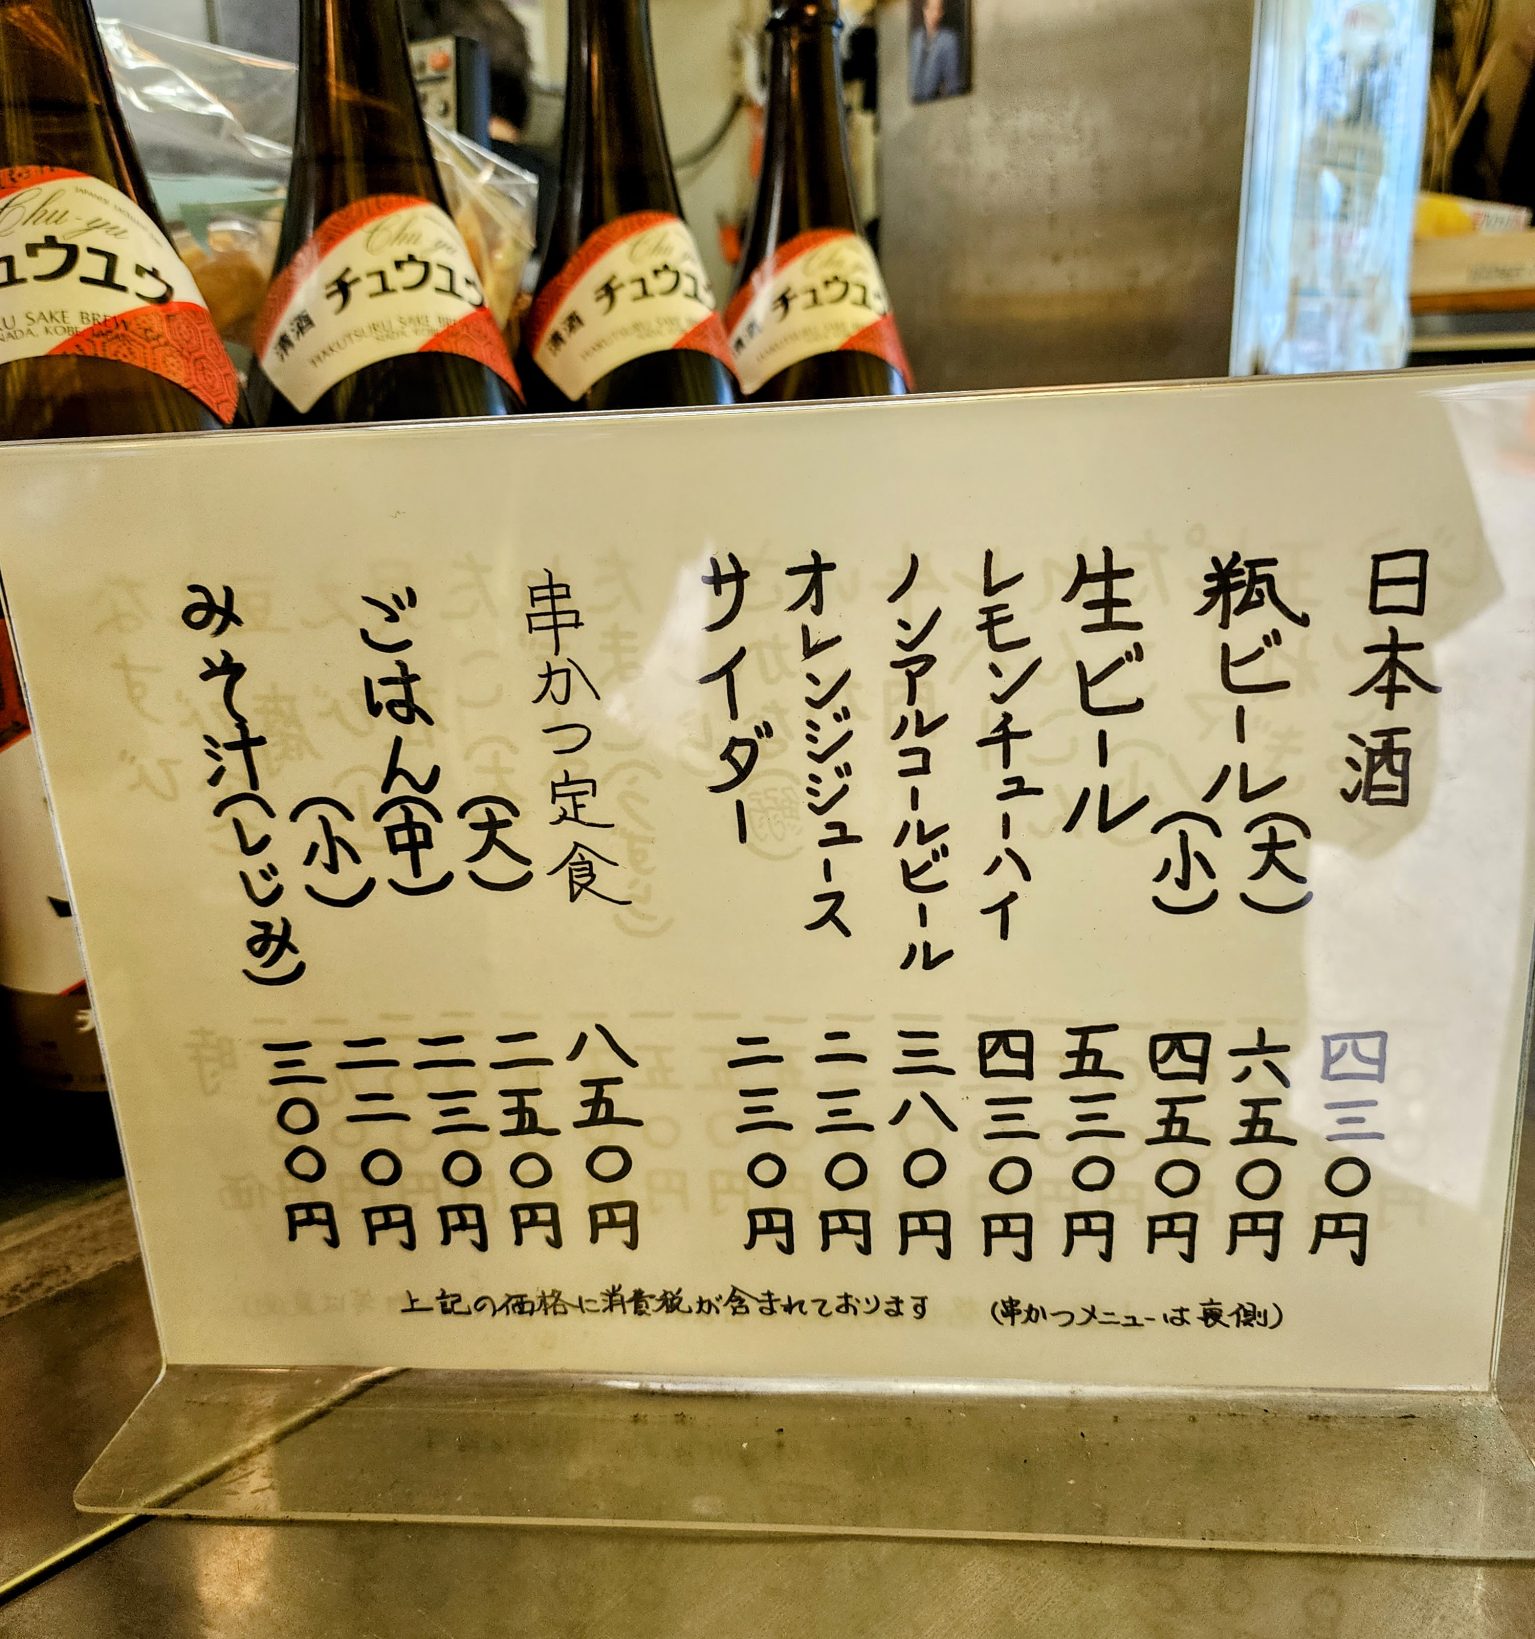 Chu-yu
ュウユウ
SAKE BREW
NADA, KOBE, JAPAN
Chu-yu
チュウユウ
清酒
HAKUTSURU SAKE BRE
NADA, KOBE
チュウユウ
清酒
HAKUTSURU SAKE
チュウユウ
清酒
日本酒 四三〇円
瓶ビール(大) 六五〇円
(小) 四五〇円
生ビール 五三〇円
レモンチューハイ 四三〇円
ノンアルコールビール 三八〇円
オレンジジュース 二三〇円
サイダー 二三〇円
串かつ定食 八五〇円
ごはん(大) 二五〇円
(中) 二三〇円
(小) 二二〇円
みそ汁(しじみ) 三〇〇円
上記の価格に消費税が含まれております (串かつメニューは裏側)